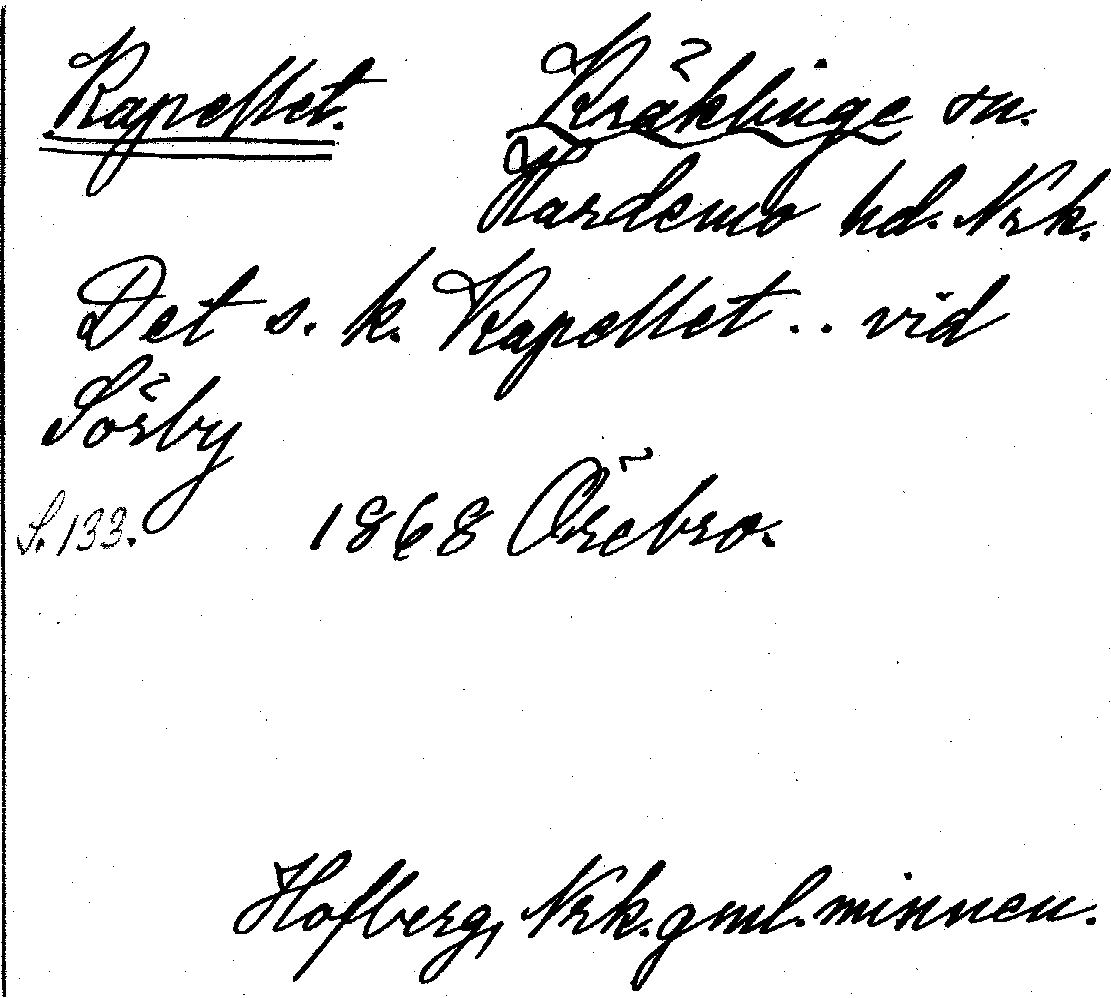 Kapellet. Kräklinge sn.
Hardemo hd. Nrk.
Det s. k. Kapellet . . vid
Sörby
S. 133. 1868 Örebro.
Hofberg, Nrk. gml. minnen.